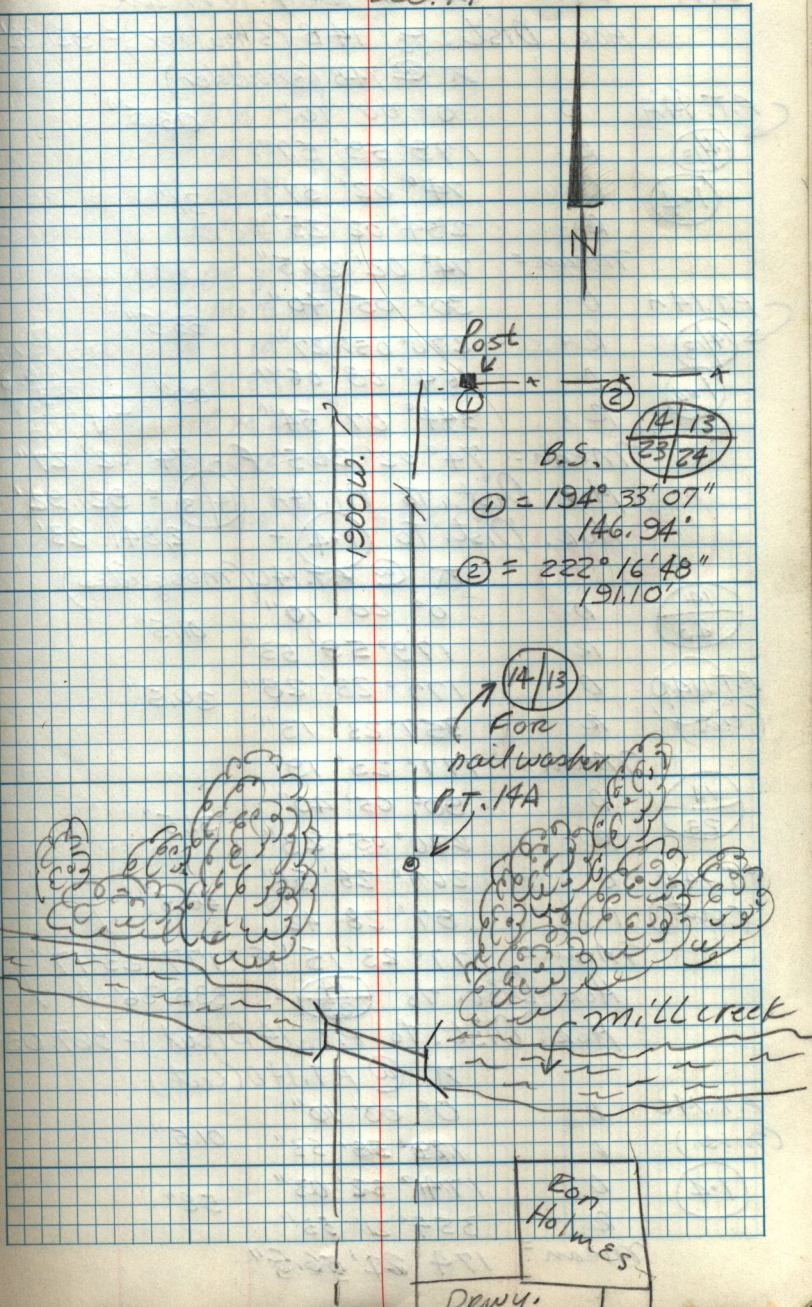 N
Post
① ②
14 13
23 24
B.S.
① = 194° 33' 07"
146.94'
② = 222° 16' 48"
191.10'
1900 W.
14 13
For
nail washer
P.T. 14A
mill creek
Ron
Holmes
Drwy.